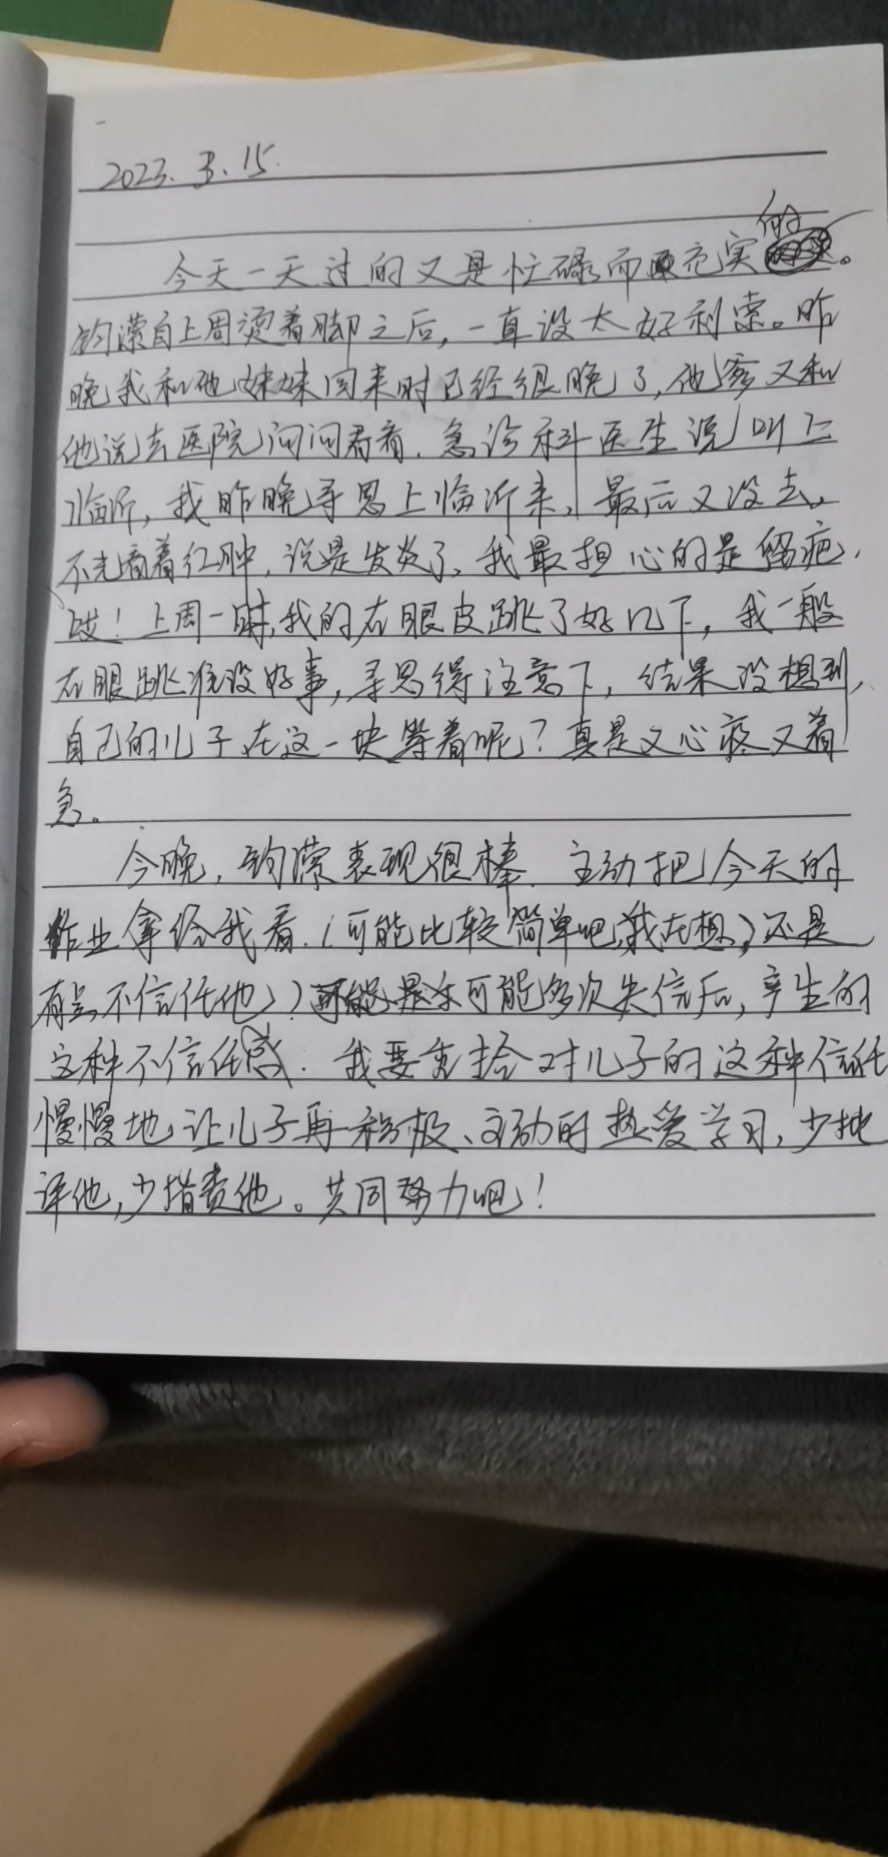 2023.3.15.
今天一天过的又是忙碌而充实的。
钧濴自上周烫着脚之后,一直没太好利索。昨
晚我和他妹妹回来时已经很晚了,他爹又和
他说去医院问问看看.急诊科医生说叫上
临沂,我昨晚寻思上临沂来,最后又没去,
不光淌着红肿,说是发炎了、我最担心的是留疤,
哎!上周一时,我的右眼皮跳了好几下,我一般
右眼跳准没好事,寻思得注意下,结果没想到,
自己的儿子在这一块等着呢?真是又心疼又着
急。
今晚,钧濴表现很棒.主动把今天的
作业拿给我看.(可能比较简单吧,我在想,还是
有点不信任他)可能多次失信后,产生的
这种不信任感.我要重拾对儿子的这种信任
慢慢地让儿子再积极、主动的热爱学习,少批
评他,少指责他。共同努力吧!